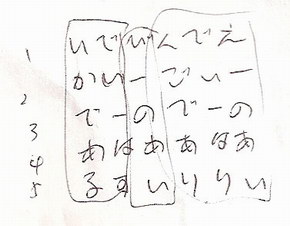 1 いでびんでえ
2 かいーごいー
3 でーのでーの
4 あはああはあ
5 るすいりりい